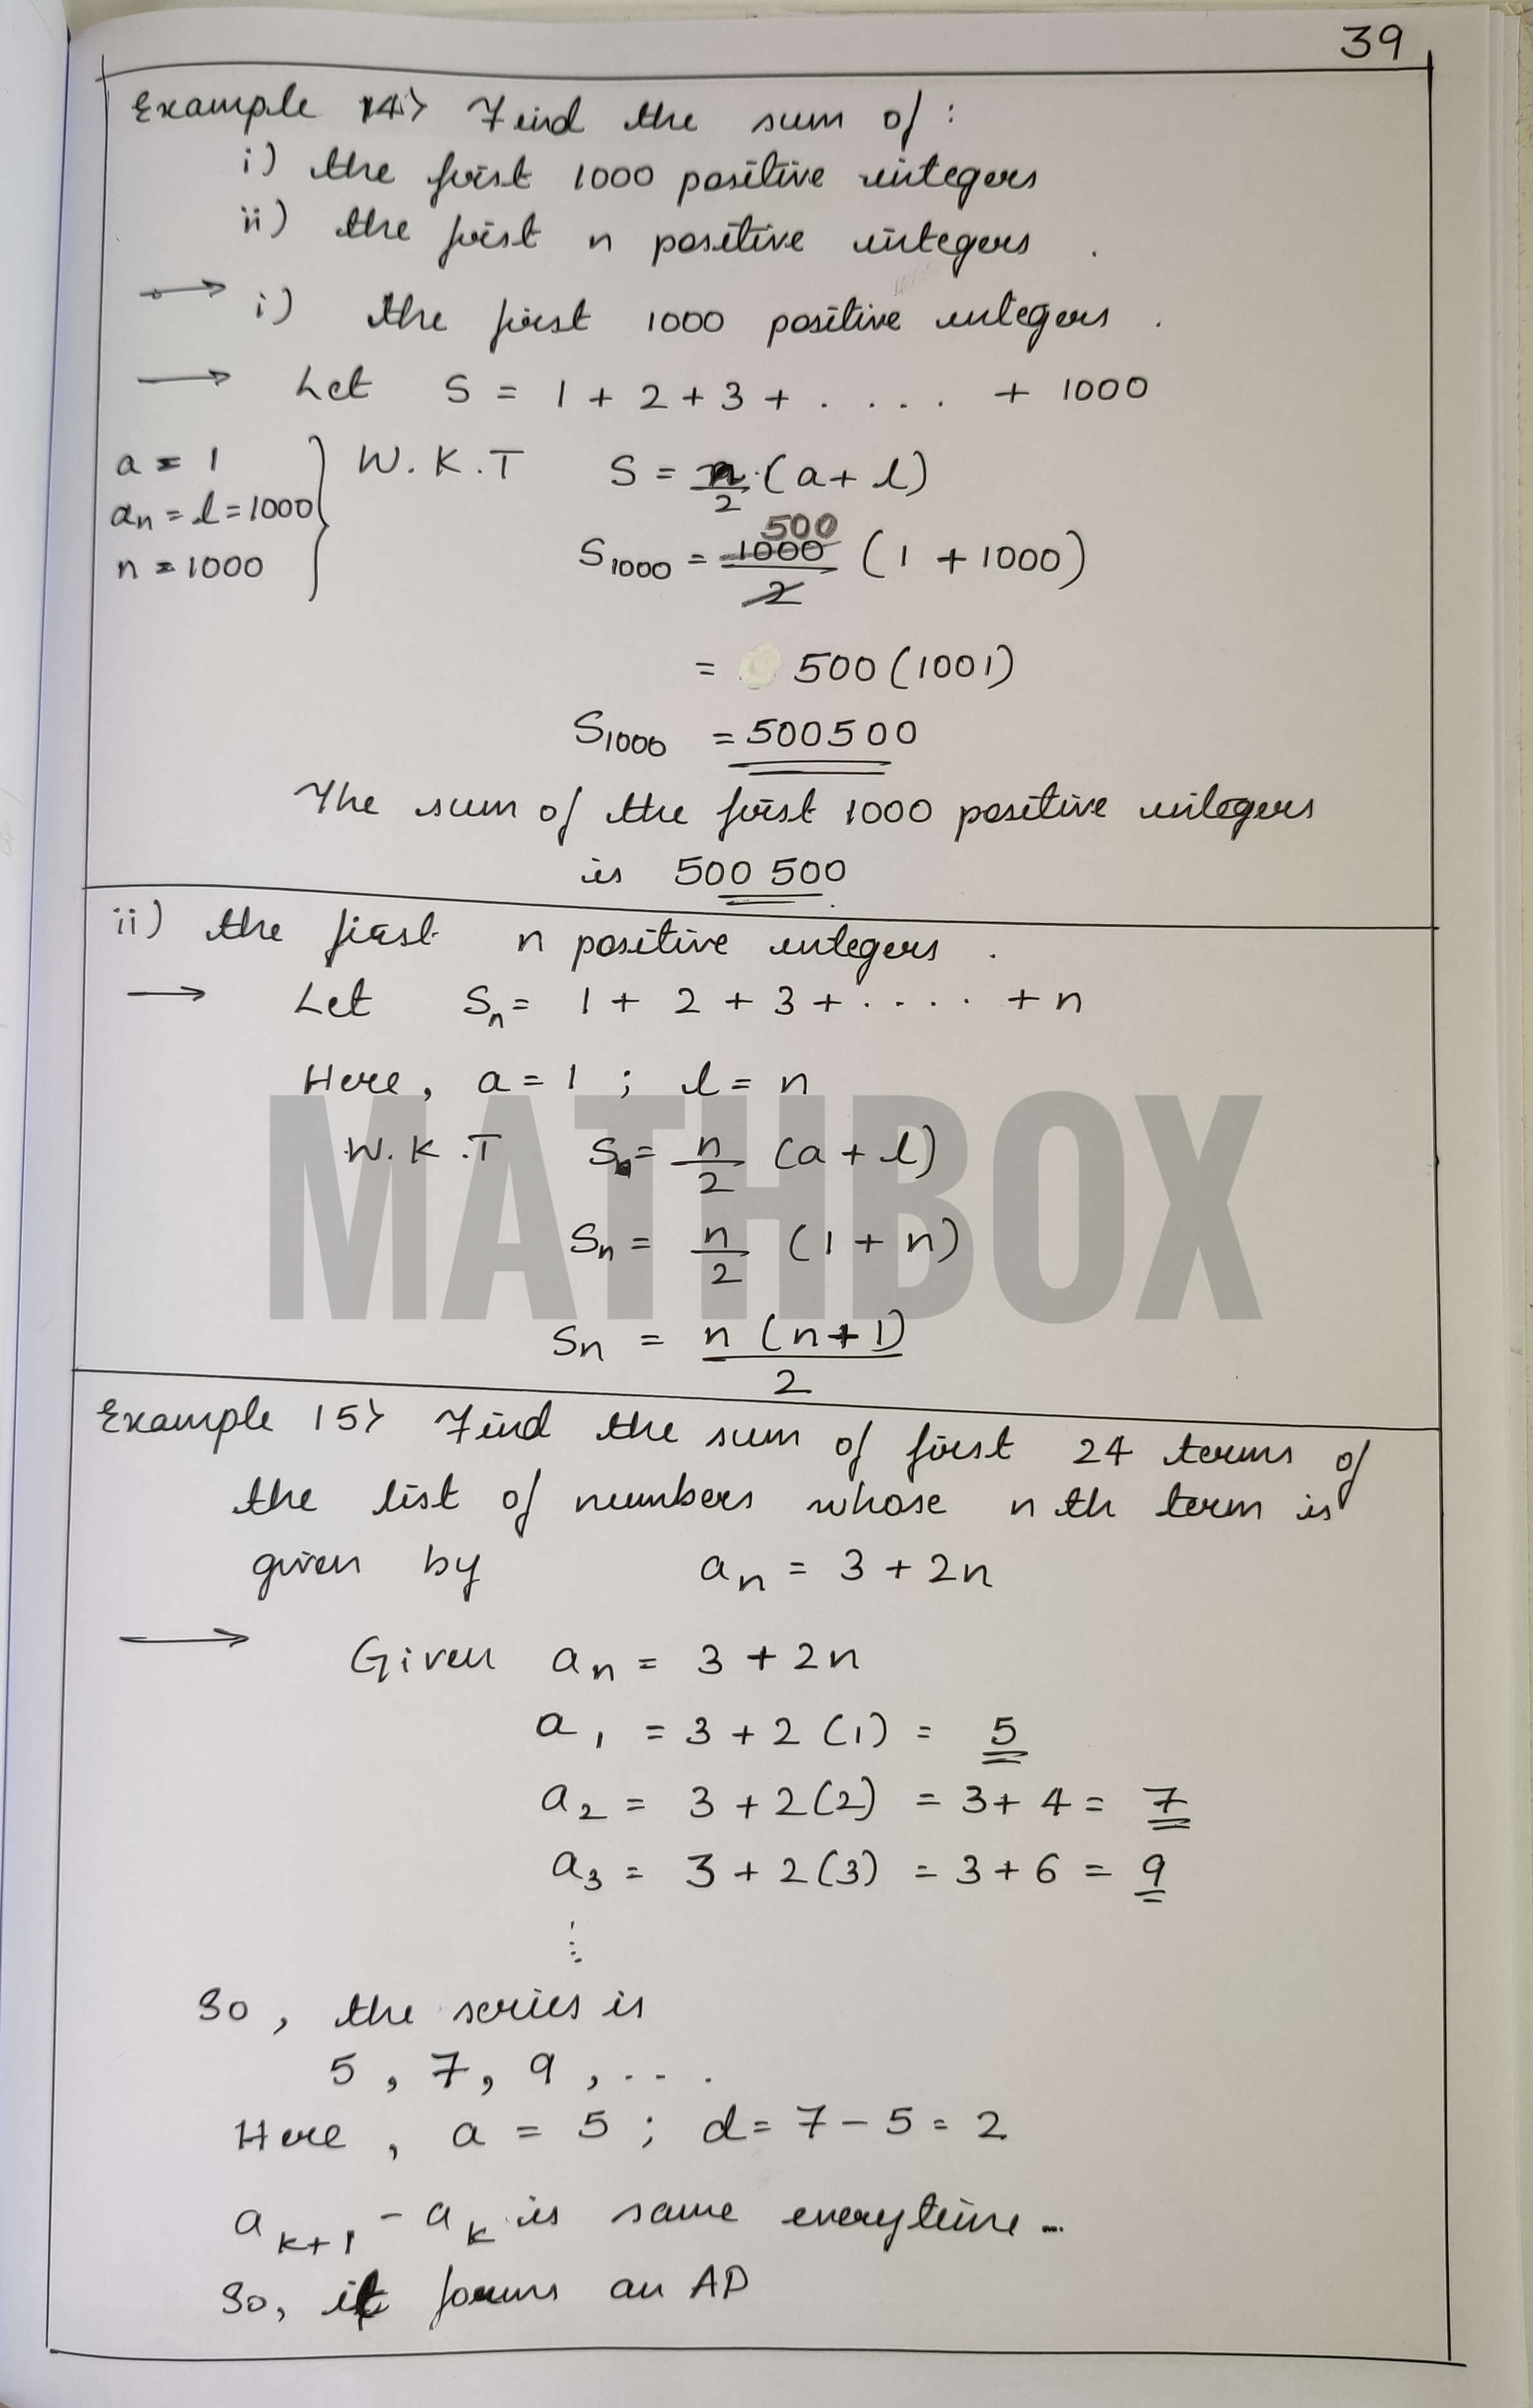 39
Example 14> Find the sum of :
i) the first 1000 positive integers
ii) the first n positive integers .
→ i) the first 1000 positive integers .
→ Let S = 1 + 2 + 3 + . . . . + 1000
a = 1 } W.K.T S = n/2 . (a + l)
aₙ = l = 1000
n = 1000
500
S₁₀₀₀ = 1000/2 (1 + 1000)
= 500 (1001)
S₁₀₀₀ = 500500
The sum of the first 1000 positive integers
is 500 500
ii) the first n positive integers .
→ Let Sₙ = 1 + 2 + 3 + . . . . + n
Here, a = 1 ; l = n
W.K.T Sₙ = n/2 (a + l)
Sₙ = n/2 (1 + n)
Sₙ = n (n + 1)/2
MATHBOX
Example 15> Find the sum of first 24 terms of
the list of numbers whose nth term is
given by aₙ = 3 + 2n
→ Given aₙ = 3 + 2n
a₁ = 3 + 2 (1) = 5
a₂ = 3 + 2(2) = 3 + 4 = 7
a₃ = 3 + 2(3) = 3 + 6 = 9
⋮
So, the series is
5 , 7, 9 , . . .
Here , a = 5 ; d = 7 - 5 = 2
aₖ₊₁ - aₖ is same everytime ...
So, it forms an AP